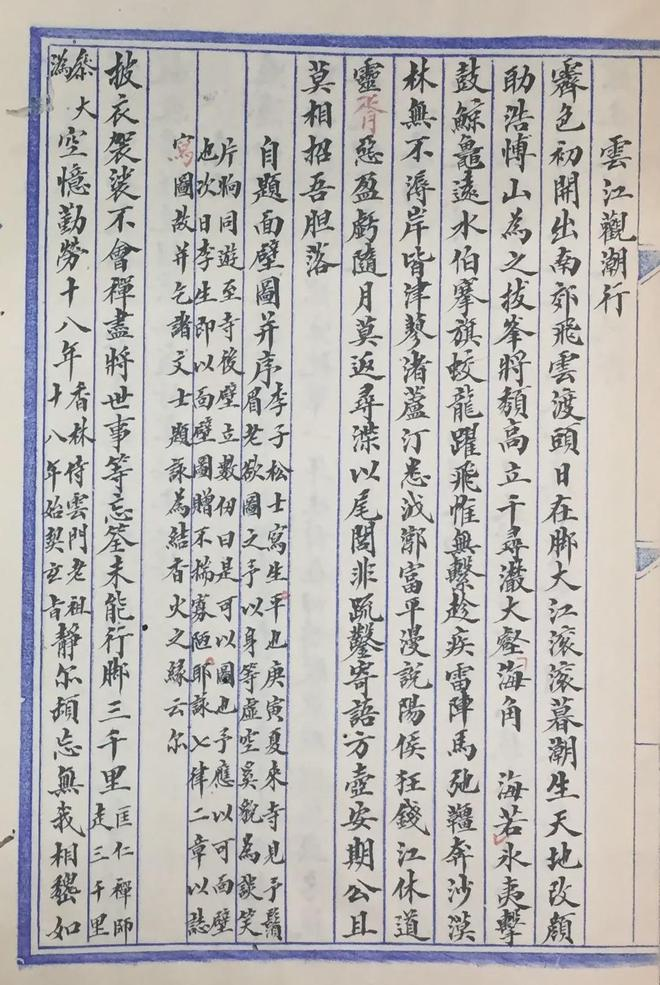 雲江觀潮行
霽色初開出南郊飛雲渡頭日在脚大江滚滚暮潮生天地改顔
助浩愽山為之拔峯將頽高立千尋瀲大壑海角 海若氷夷擊
鼓鯨鼍遠水伯搴旗蛟龍躍飛惟無繫趁疾雷陣馬弛韁奔沙漠
林無不溽岸皆津蓼渚蘆汀悉成鄛富平漫說陽侯狂錢江休道
靈胥惡盈虧隨月莫返尋渫以尾閭非䟽鑿寄語方壺安期公且
莫相招吾胆落
自題面壁圖并序李子松士寫生平也庚寅夏来寺見予鬚
眉老欲圖之予以身等虛空奚貌為談笑
片晌同遊至寺後壁立數仞曰是可以圖也予應以可面壁
也次日李生即以面壁圖贈不揣寡陋耶詠七律二章以誌
寫圖故并乞諸文士題詠為結香火之緣云尔
披衣袈裟不會禅盡將世事等忘筌未能行脚三千里匡仁禅師
走三千里
叅大
溈空憶勤勞十八年香林侍雲門老祖
十八年始契玄旨静尔頓忘無我相壑如